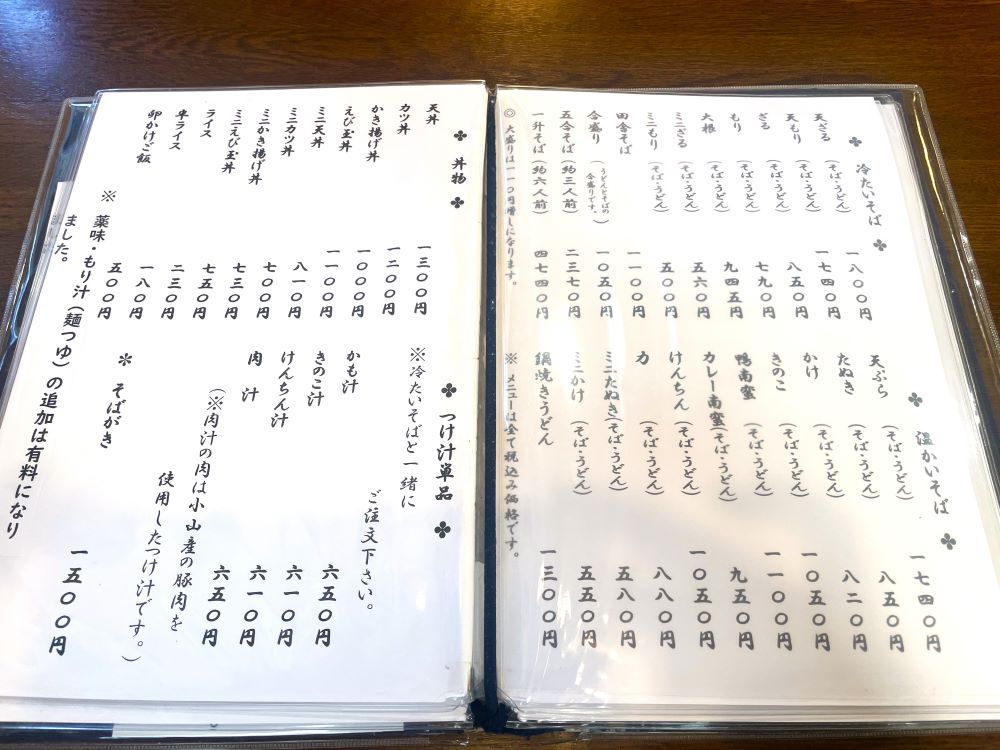 ✤ 冷たいそば ✤
天ざる (そば・うどん) 一八〇〇円
天もり (そば・うどん) 一七四〇円
ざる (そば・うどん) 八五〇円
もり (そば・うどん) 七九〇円
大根 (そば・うどん) 九四五円
ミニざる (そば・うどん) 五六〇円
ミニもり (そば・うどん) 五〇〇円
田舎そば 一一〇〇円
合盛り (うどんとそばの合盛りです。) 一〇五〇円
五合そば (約三人前) 二三七〇円
一升そば (約六人前) 四七四〇円
◎ 大盛りは一一〇円増しになります。
✤ 温かいそば ✤
天ぷら (そば・うどん) 一七四〇円
たぬき (そば・うどん) 八五〇円
かけ (そば・うどん) 八二〇円
きのこ (そば・うどん) 一〇五〇円
鴨南蛮 (そば・うどん) 一一〇〇円
カレー南蛮 (そば・うどん) 九五〇円
けんちん (そば・うどん) 一〇五〇円
力 (そば・うどん) 八八〇円
ミニたぬき (そば・うどん) 五八〇円
ミニかけ (そば・うどん) 五五〇円
鍋焼きうどん 一三〇〇円
※ メニューは全て税込み価格です。
✤ 丼物 ✤
天丼 一三〇〇円
カツ丼 一二〇〇円
かき揚げ丼 一〇〇〇円
えび玉丼 一一〇〇円
ミニ天丼 八一〇円
ミニカツ丼 七〇〇円
ミニかき揚げ丼 七三〇円
ミニえび玉丼 七五〇円
ライス 二三〇円
半ライス 一八〇円
卵かけご飯 五〇〇円
✤ つけ汁単品 ✤
※冷たいそばと一緒に
ご注文下さい。
かも汁 六五〇円
きのこ汁 六一〇円
けんちん汁 六一〇円
肉汁 六五〇円
(※肉汁の肉は小山産の豚肉を
使用したつけ汁です。)
＊ そばがき 一五〇〇円
※ 薬味・もり汁（麺つゆ）の追加は有料になり
ました。